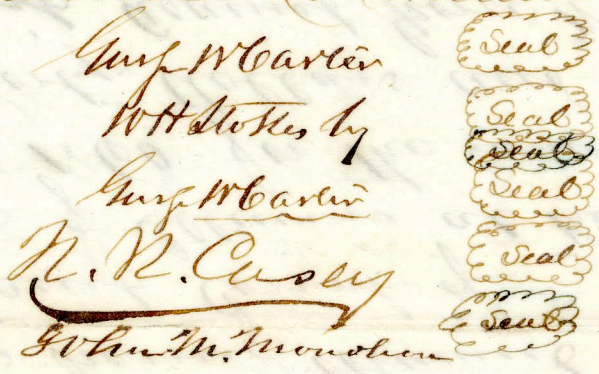 George W Carter Seal
W H Stokes by Seal
Seal
George W Carter Seal
N. R. Casey Seal
John M. Seal